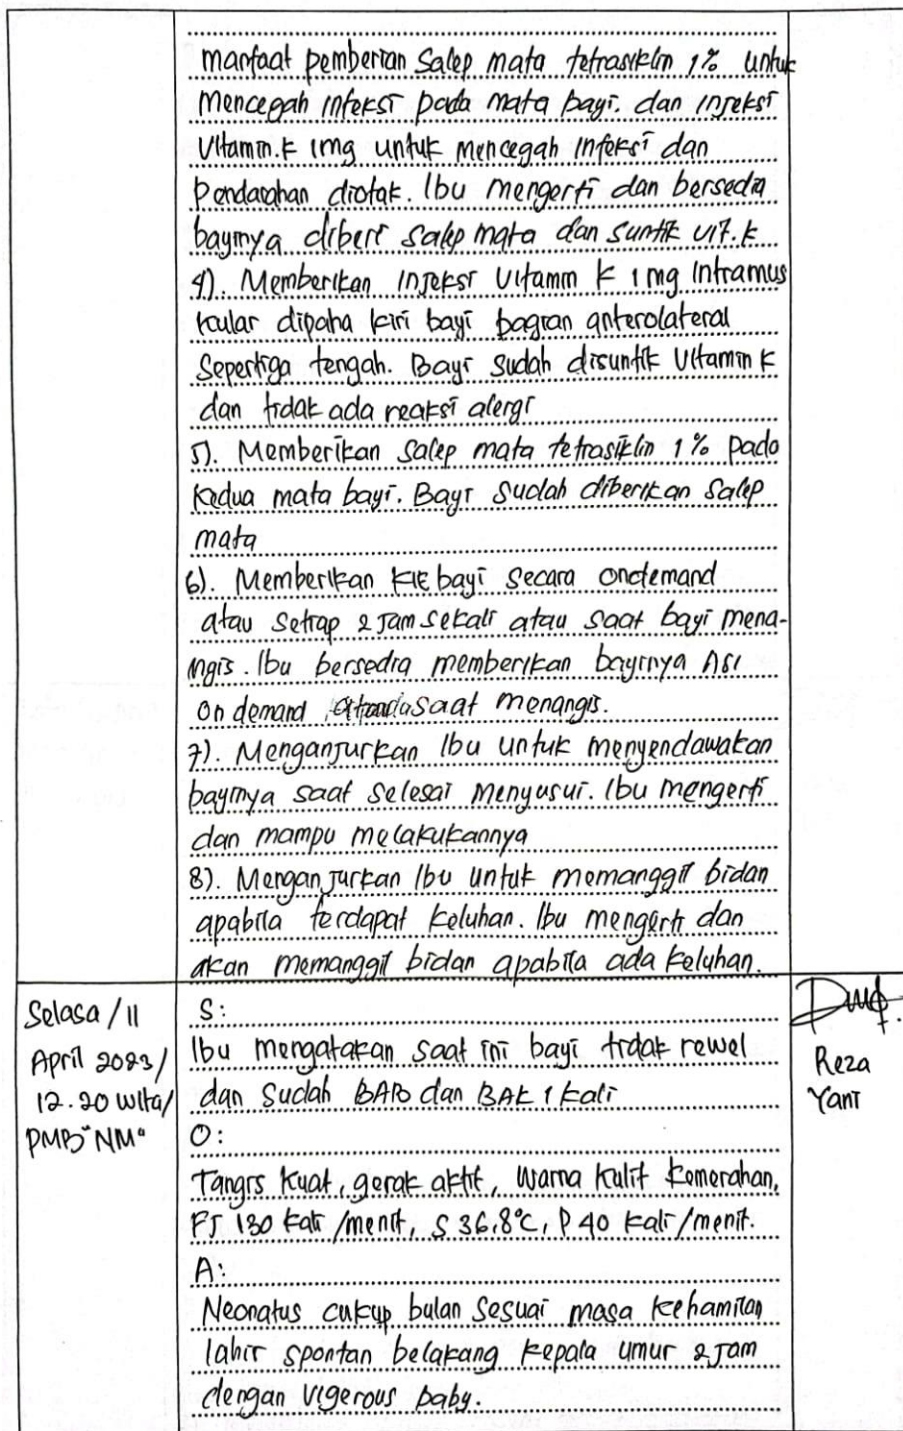 manfaat pemberian salep mata tetrasiklin 1% untuk
mencegah infeksi pada mata bayi. dan injeksi
Vitamin.K 1mg untuk mencegah infeksi dan
Pendarahan diotak. Ibu mengerti dan bersedia
bayinya diberi salep mata dan suntik vit.K
4). Memberikan injeksi vitamin K 1mg intramus
kular dipaha kiri bayi bagian anterolateral
sepertiga tengah. Bayi sudah disuntik vitamin K
dan tidak ada reaksi alergi
5). Memberikan salep mata tetrasiklin 1% pada
kedua mata bayi. Bayi sudah diberikan salep
mata
6). Memberikan KIE bayi secara ondemand
atau setiap 2 jam sekali atau saat bayi mena-
ngis. Ibu bersedia memberikan bayinya ASI
on demand saat menangis.
7). Menganjurkan Ibu untuk menyendawakan
bayinya saat selesai menyusui. Ibu mengerti
dan mampu melakukannya
8). Menganjurkan Ibu untuk memanggil bidan
apabila terdapat keluhan. Ibu mengerti dan
akan memanggil bidan apabila ada keluhan.
Selasa / 11
April 2023/
12.20 wita/
PMB "NM"
S:
Ibu mengatakan saat ini bayi tidak rewel
dan sudah BAB dan BAK 1 kali
O:
Tangis kuat, gerak aktif, warna kulit kemerahan,
FJ 130 kali /menit, S 36,8°C, P 40 kali/menit.
A:
Neonatus cukup bulan sesuai masa kehamilan
lahir spontan belakang kepala umur 2 jam
dengan vigerous baby.
Reza
Yani